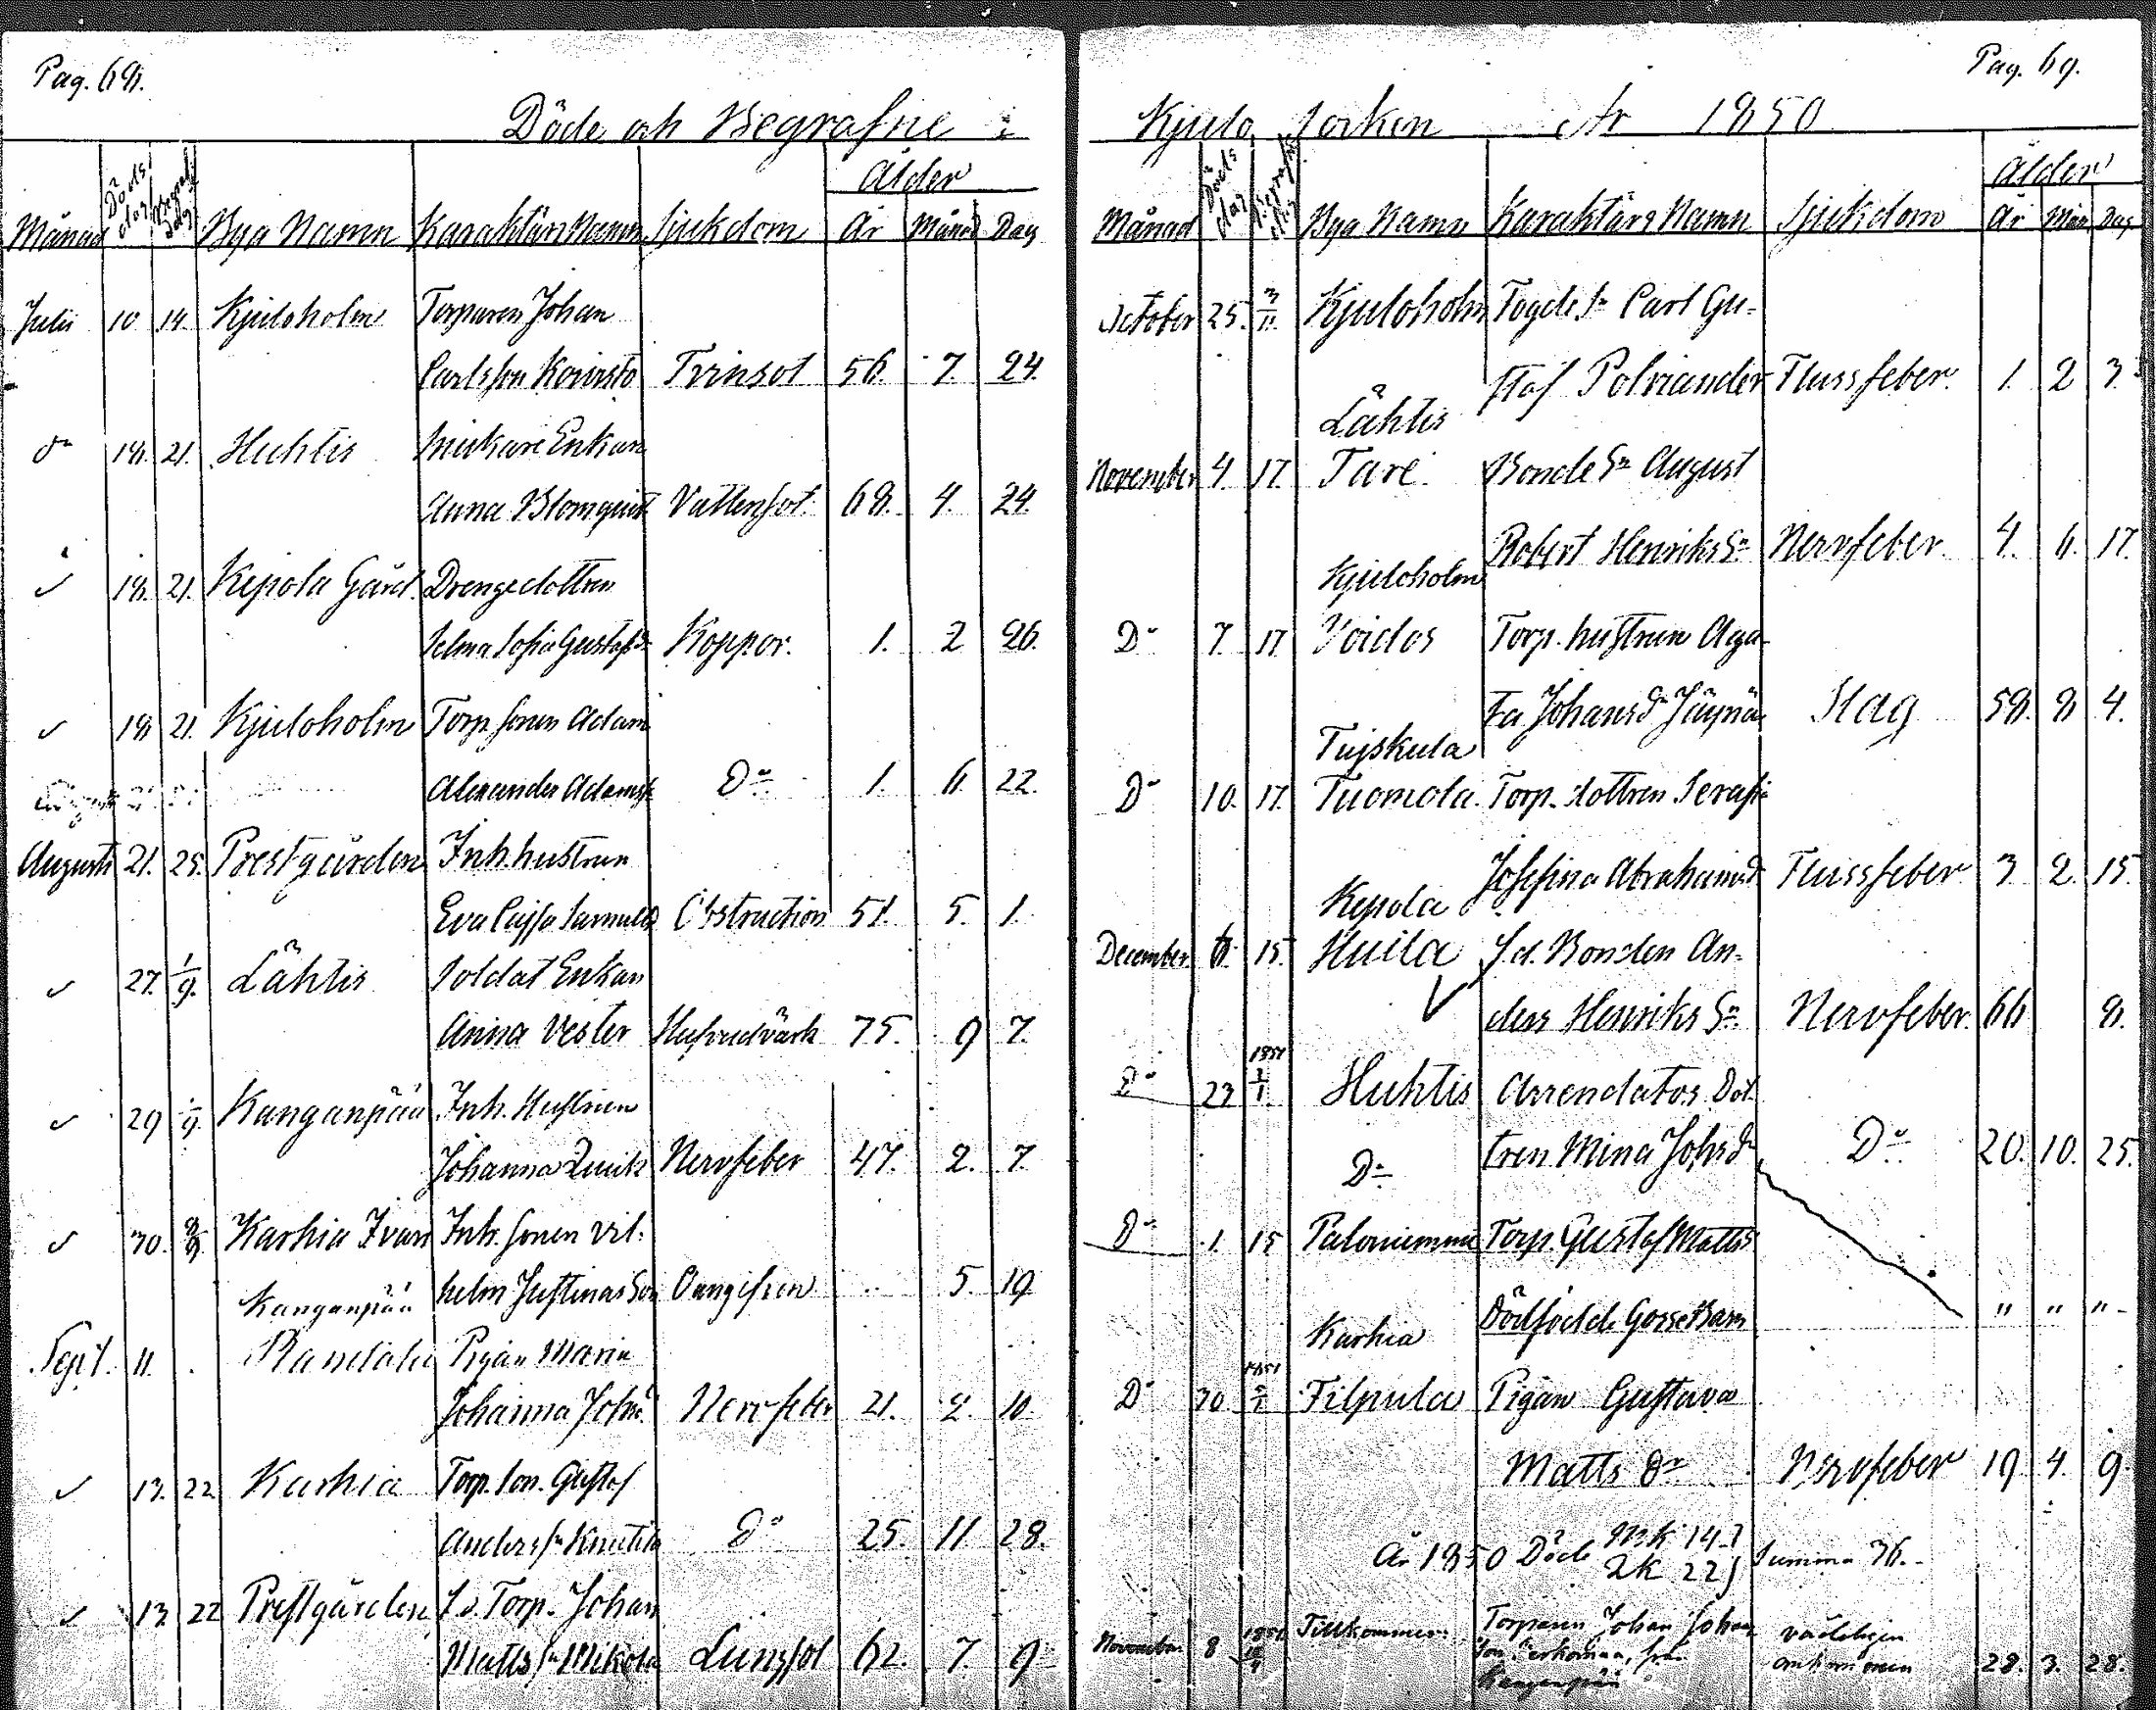 Pag. 68.
Döde och Begrafne i
Ålder
Månad Döds dag Begraf. dag Bya Namn Karaktärs Namn Sjukdom År Månad Dag
Julii 10 14. Kjuloholm Torparen Johan
Carlsson Koivisto Tvinsot 56. 7. 24.
Do 18. 21. Huhtis Enkan
Anna Blomquist Vattensot. 68. 4. 24.
18. 21. Kepola Gård. Drengedottren
Selma Sofia Gustafsdr Koppor. 1. 2 26.
18 21. Kjuloholm Torp. sonen Adam
Alexander Adamss. Do 1. 6. 22.
Augusti 21. 25. Prestgården Inh. hustrun
Eva Cajsa Samuelsd Obstruction 51. 5. 1.
27. 1/9. Lähtis Soldat Enkan
Anna Vester Hufvudvärk 75. 9 7.
29 1/9. Kanganpää Inh. Hustrun
Johanna Nervfeber 47. 2. 7.
30. 8/9. Karhia Ivari Inh. sonen Vil-
helm Justinas Son Oangifven .. 5. 19
Kanganpää
Sept. 11. Pigan Maria
Johanna Johsdr Nervfeber 21. 2. 10.
13. 22 Karhia Torp. son. Gustaf
Anders sn Knutila Do 25. 11 28.
13 22 Prestgården F.d. Torp. Johan
Matts sn Mikola Lungsot 62. 7. 9
Pag. 69.
Kjulo Socken År 1850
Ålder
Månad Döds dag Begrafn. dag Bya Namn Karaktärs Namn Sjukdom År Mån Dag
October 25. 3/11. Kjuloholm Fogde sn Carl Gu-
staf Polviander Flussfeber. 1. 2 3
Lähtis
November 4. 17. Tare. Bonde Sn August
Robert Henriks Sn Nervfeber. 4. 6. 17.
Kjuloholm
Do 7. 17 Voidos Torp. hustrun Aga-
ta Johans dr Slag 58. 8 4.
Tujskula
Do 10. 17. Tuomola. Torp. dottren Serafia
Josefina Abrahamsd Flussfeber 3. 2. 15.
Kepola
December 6. 15. Huila F.d. Bonden An-
ders Henriks Sn Nervfeber. 66 8.
1851
Do 23 2/1. Huhtis Arrendators Dot-
tren Mina Johs dr Do 20. 10. 25.
Do
Do 1. 15 Paloniemmi Torp. Gustaf Mattss
Dödfödde Gosse Barn " " "
Karhia
1851
Do 30 Filpula Pigan Gustava
Matts dr Nervfeber 19. 4. 9.
År 1850 Döde MK 14
QK 22 } Summa 36.
1851
November 8 Tillkommer: Torparen Johan Johan
son från vådeligen
Kanganpää omkommen 28. 3. 28.